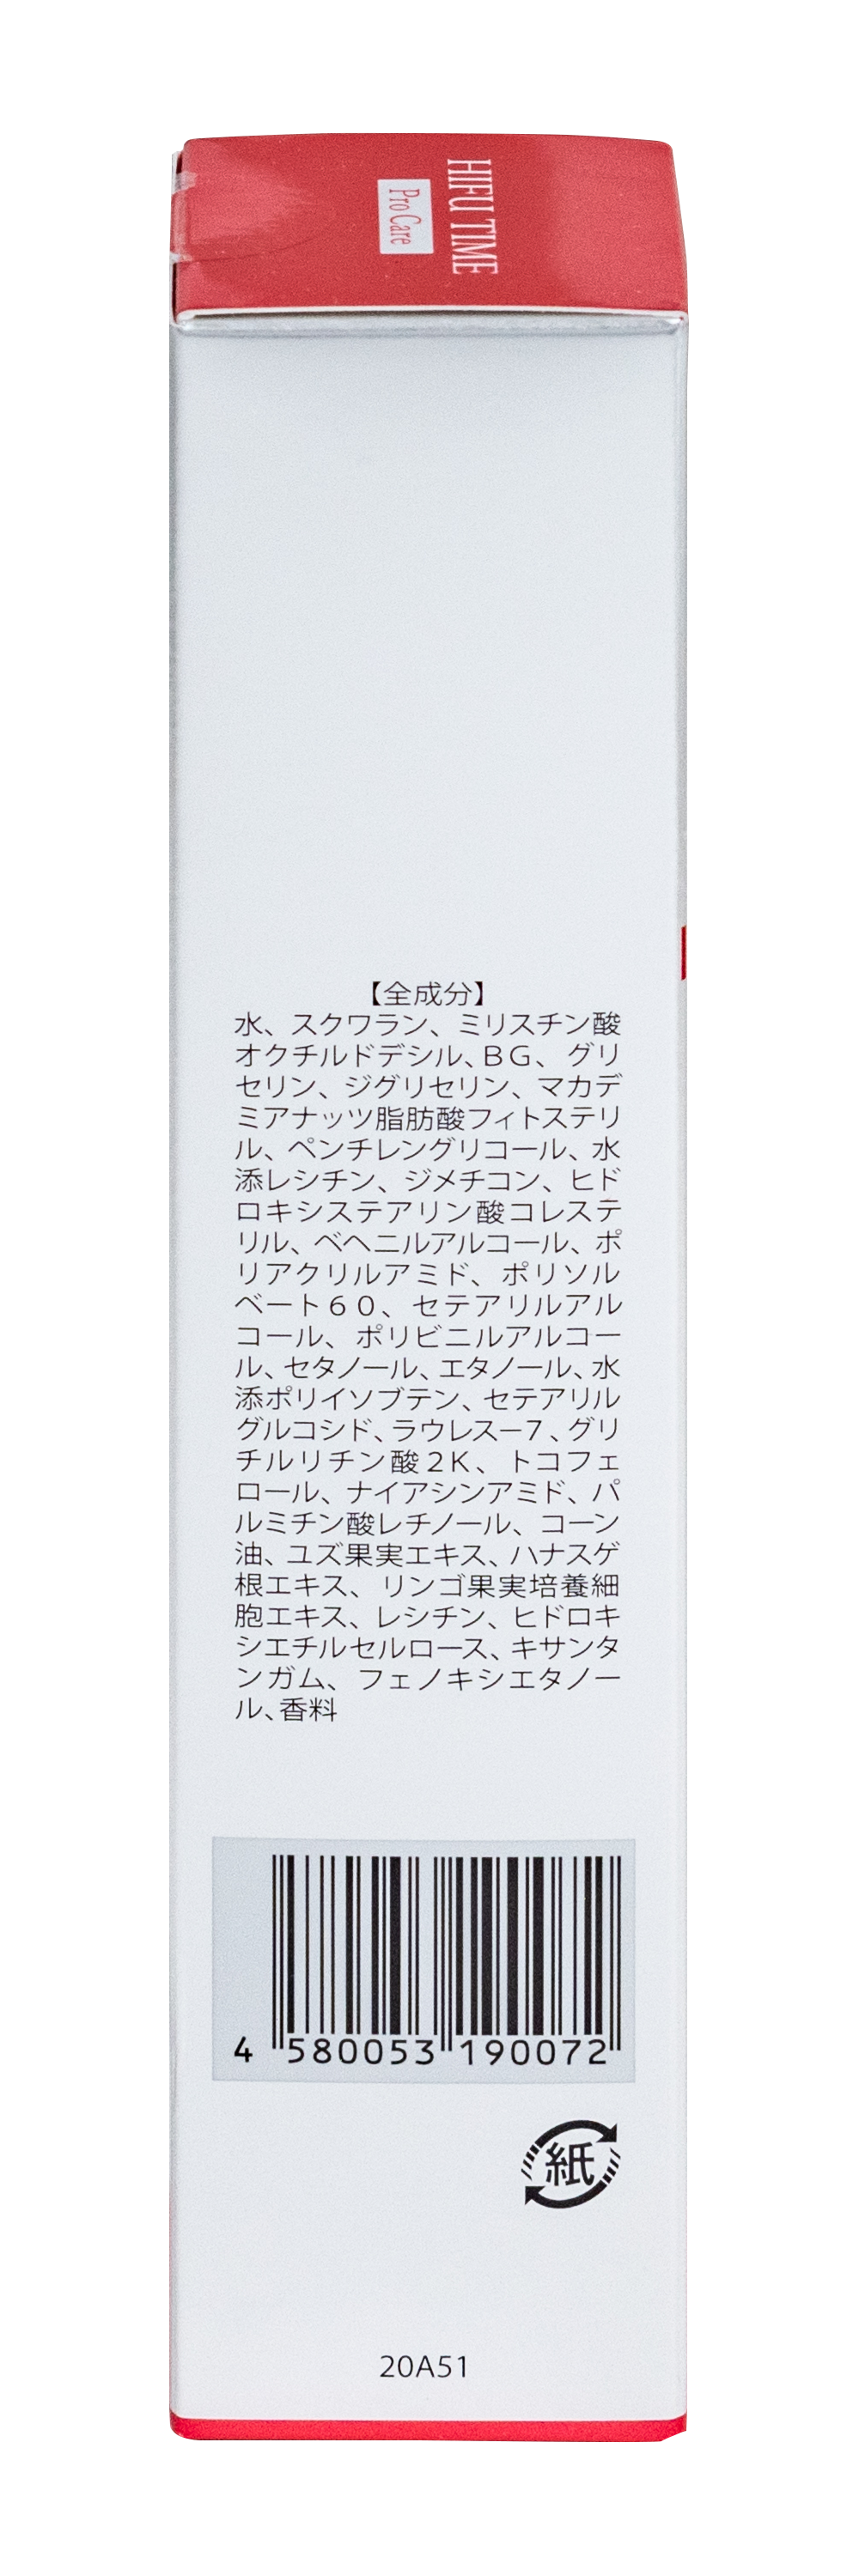 HIFU TIME
Pro Care
【全成分】
水、スクワラン、ミリスチン酸
オクチルドデシル、BG、グリ
セリン、ジグリセリン、マカデ
ミアナッツ脂肪酸フィトステリ
ル、ペンチレングリコール、水
添レシチン、ジメチコン、ヒド
ロキシステアリン酸コレステ
リル、ベヘニルアルコール、ポ
リアクリルアミド、ポリソル
ベート60、セテアリルアル
コール、ポリビニルアルコー
ル、セタノール、エタノール、水
添ポリイソブテン、セテアリル
グルコシド、ラウレスー7、グリ
チルリチン酸2K、トコフェ
ロール、ナイアシンアミド、パ
ルミチン酸レチノール、コーン
油、ユズ果実エキス、ハナスゲ
根エキス、リンゴ果実培養細
胞エキス、レシチン、ヒドロキ
シエチルセルロース、キサンタ
ンガム、フェノキシエタノー
ル、香料
4 580053 190072
紙
20A51